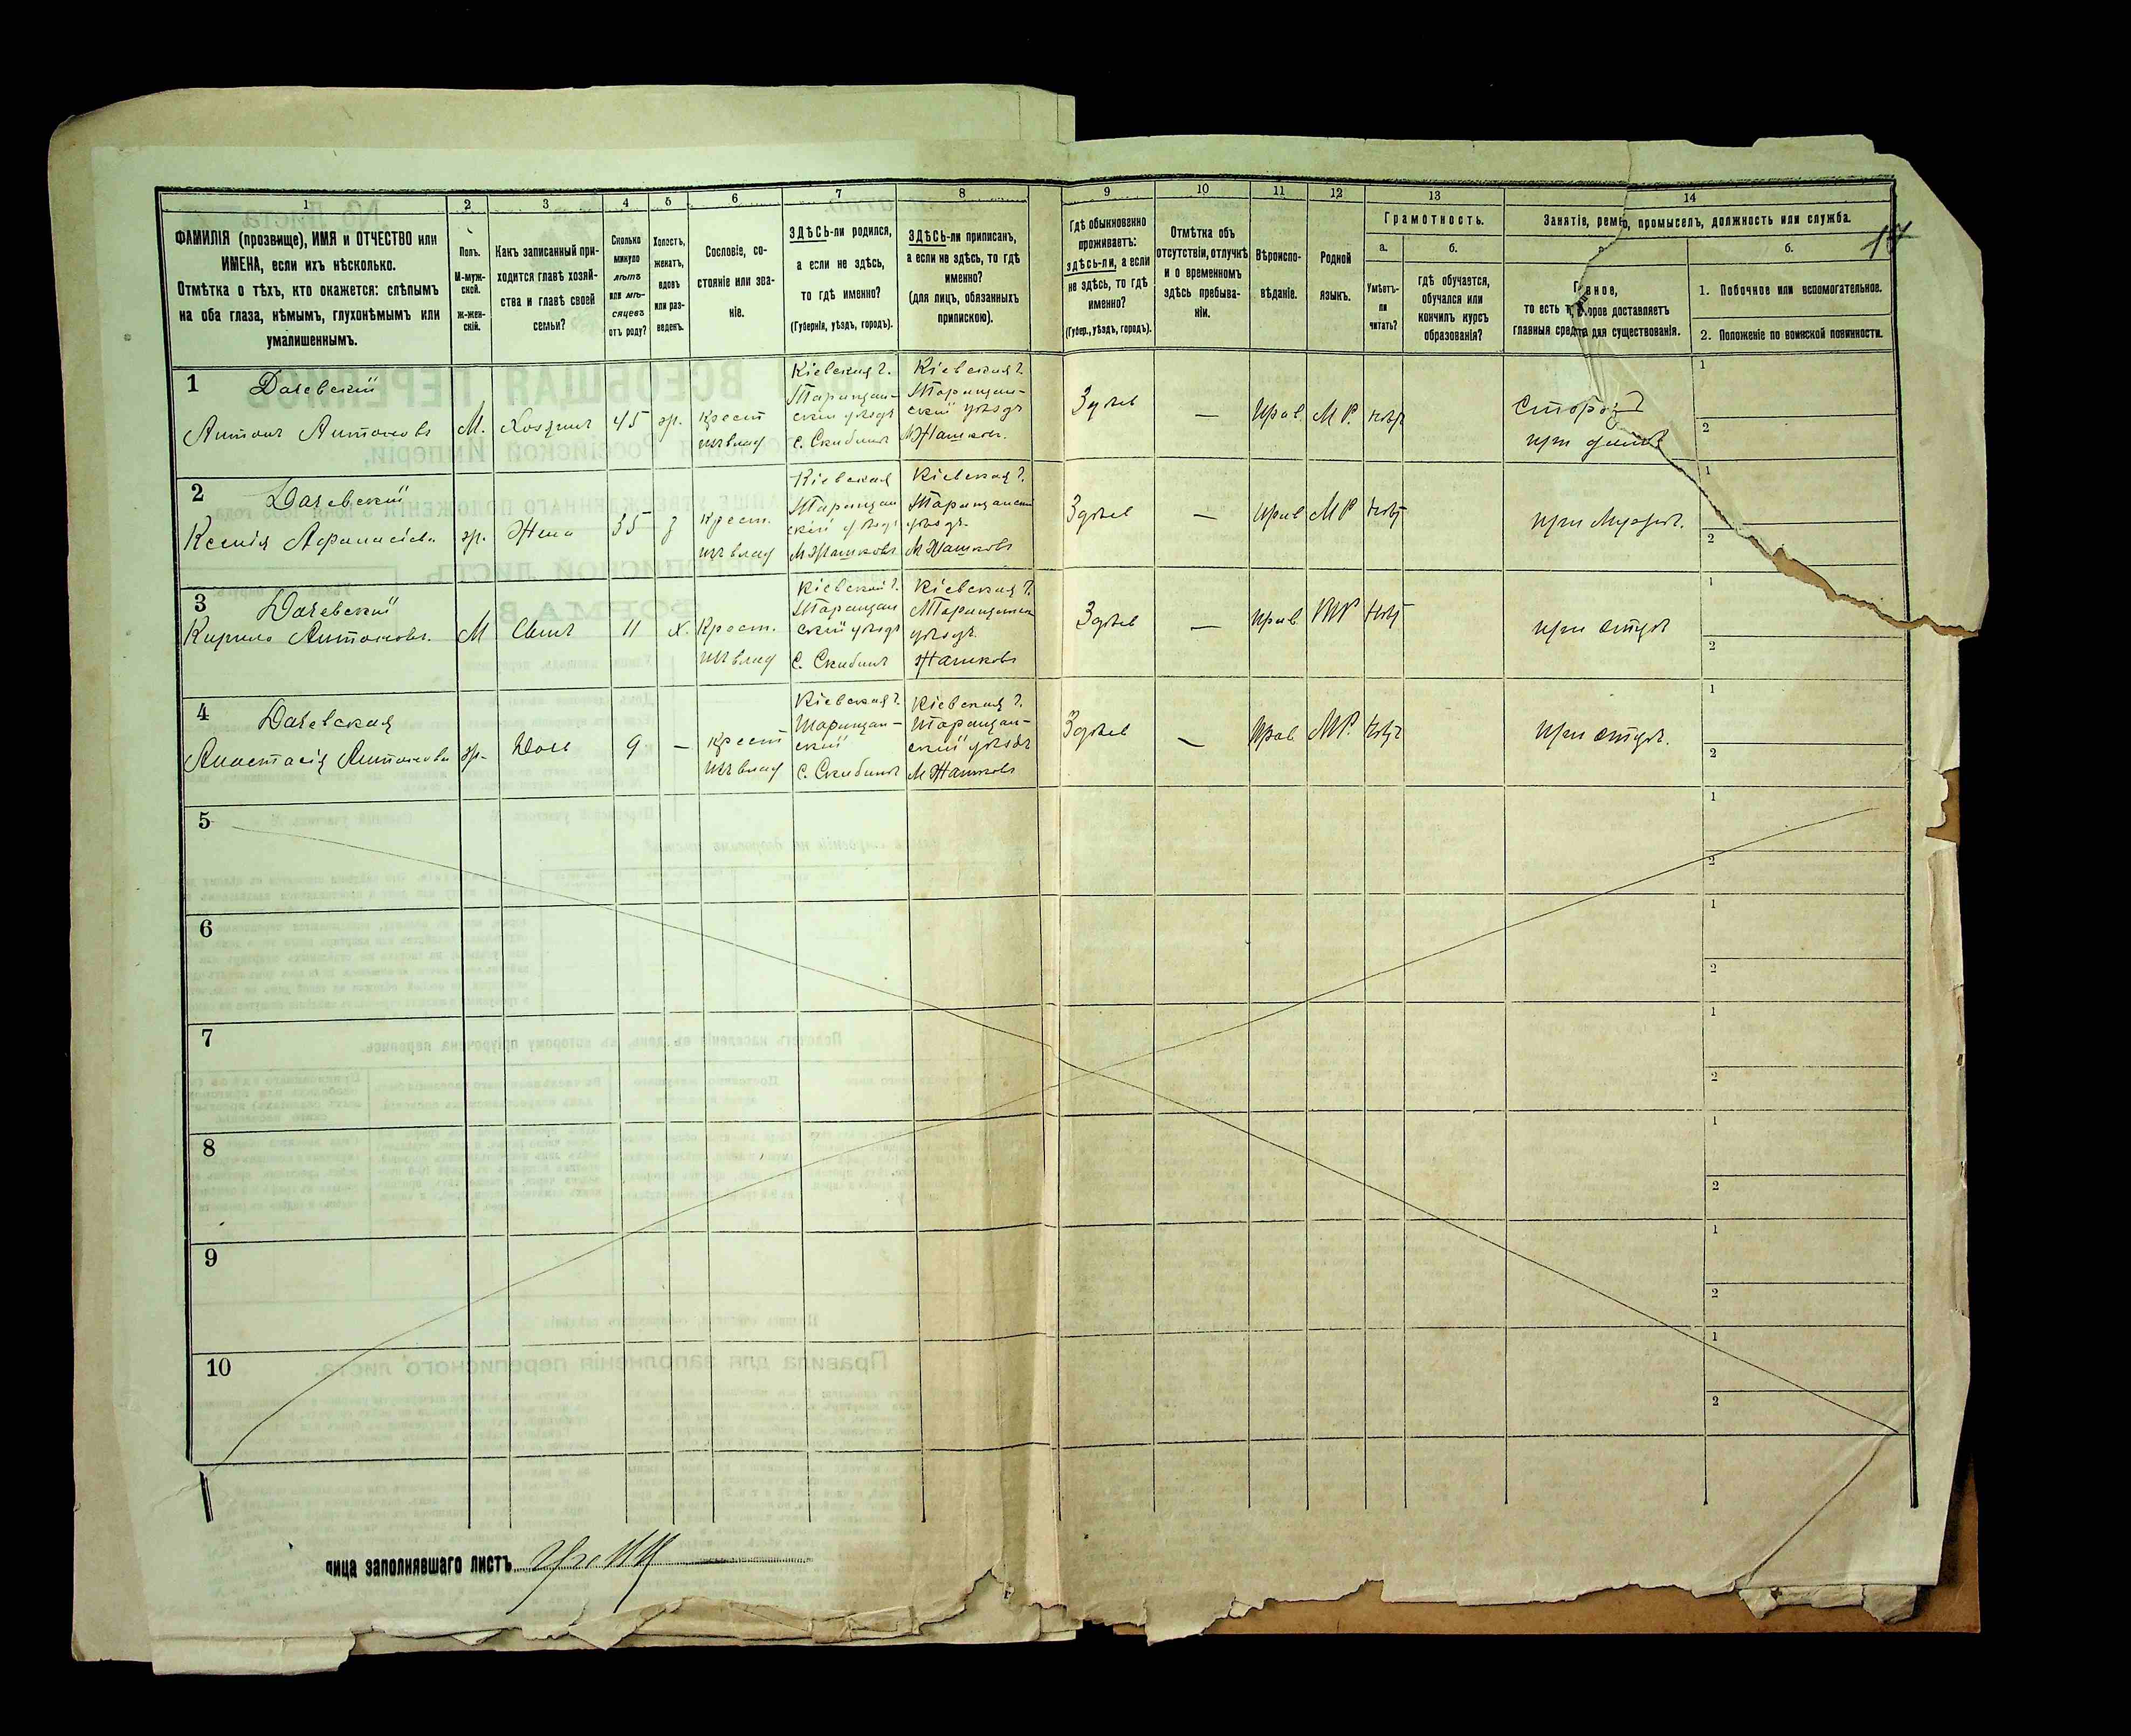 1 2 3 4 5 6 7 8 9 10 11 12 13 14
ФАМИЛІЯ (прозвище), ИМЯ и ОТЧЕСТВО или
ИМЕНА, если ихъ нѣсколько.
Отмѣтка о тѣхъ, кто окажется: слѣпымъ
на оба глаза, нѣмымъ, глухонѣмымъ или
умалишеннымъ.
Полъ.
М-муж-
ской.
Ж-жен-
скій.
Какъ записанный при-
ходится главѣ хозяй-
ства и главѣ своей
семьи?
Сколько
минуло
лѣтъ
или мѣ-
сяцевъ
отъ роду?
Холостъ,
женатъ,
вдовъ
или раз-
веденъ.
Сословіе, со-
стояніе или зва-
ніе.
ЗДѢСЬ-ли родился,
а если не здѣсь,
то гдѣ именно?
(Губернія, уѣздъ, городъ).
ЗДѢСЬ-ли приписанъ,
а если не здѣсь, то гдѣ
именно?
(для лицъ, обязанныхъ
припискою).
Гдѣ обыкновенно
проживаетъ:
здѣсь-ли, а если
не здѣсь, то гдѣ
именно?
(Губер., уѣздъ, городъ).
Отмѣтка объ
отсутствіи, отлучкѣ
и о временномъ
здѣсь пребыва-
ніи.
Вѣроиспо-
вѣданіе.
Родной
языкъ.
Грамотность.
а.
Умѣетъ-
ли
читать?
б.
гдѣ обучается,
обучался или
кончилъ курсъ
образованія?
Занятіе, реме о, промыселъ, должность или служба.
вное,
то есть т орое доставляетъ
главныя средства для существованія.
б.
1. Побочное или вспомогательное.
2. Положеніе по воинской повинности.
17
1
Дачевскій
Антонъ Антоновъ
М.
Хозяинъ
45
ж.
крест
изъ влад
Кіевская г.
Таращан-
скій уѣздъ
с. Скибинъ
Кіевская г.
Таращан-
скій уѣздъ
М Жашковъ.
Здѣсь
—
Прав.
М Р.
нѣт
Сторож
при
1
2
2
Дачевскій
Ксенія Афанасіева
ж.
Жена
35
з
крест.
изъ влад
Кіевская
Таращан
скій уѣзд
М Жашковъ
Кіевская г.
Таращанскій
уѣздъ.
М Жашковъ
Здѣсь
—
Прав
М Р
нѣт
при Мужѣ.
1
2
3
Дачевскій
Кирило Антоновъ.
М
Сынъ
11
х.
Крест.
изъ влад
Кіевской г.
Таращан
скій уѣздъ
С. Скибинъ
Кіевская г.
Таращанск
уѣздъ.
Жашковъ
Здѣсь
—
Прав.
МР
нѣт
при отцѣ
1
2
4
Дачевская
Анастасія Антонова
ж.
Дочь
9
—
крест
изъ влад
Кіевская г.
Таращан-
скій
С. Скибинъ
Кіевская г.
Таращан-
скій уѣздъ
М Жашковъ
Здѣсь
—
Прав
МР.
нѣт
при отцѣ.
1
2
5
1
2
6
1
2
7
1
2
8
1
2
9
1
2
10
1
2
лица заполнявшаго листъ